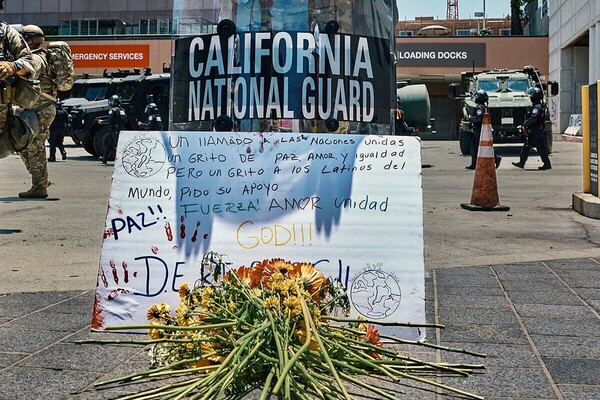 EMERGENCY SERVICES
LOADING DOCKS
CALIFORNIA
NATIONAL GUARD
UN LLAMADO A LAS NACIONES UNIDAS
UN GRITO DE PAZ, AMOR y igualdad
PERO UN GRITO A LOS LATINOS DEL
MUNDO, PIDO SU APOYO
FUERZA! AMOR unidad
PAZ!!
GOD!!!